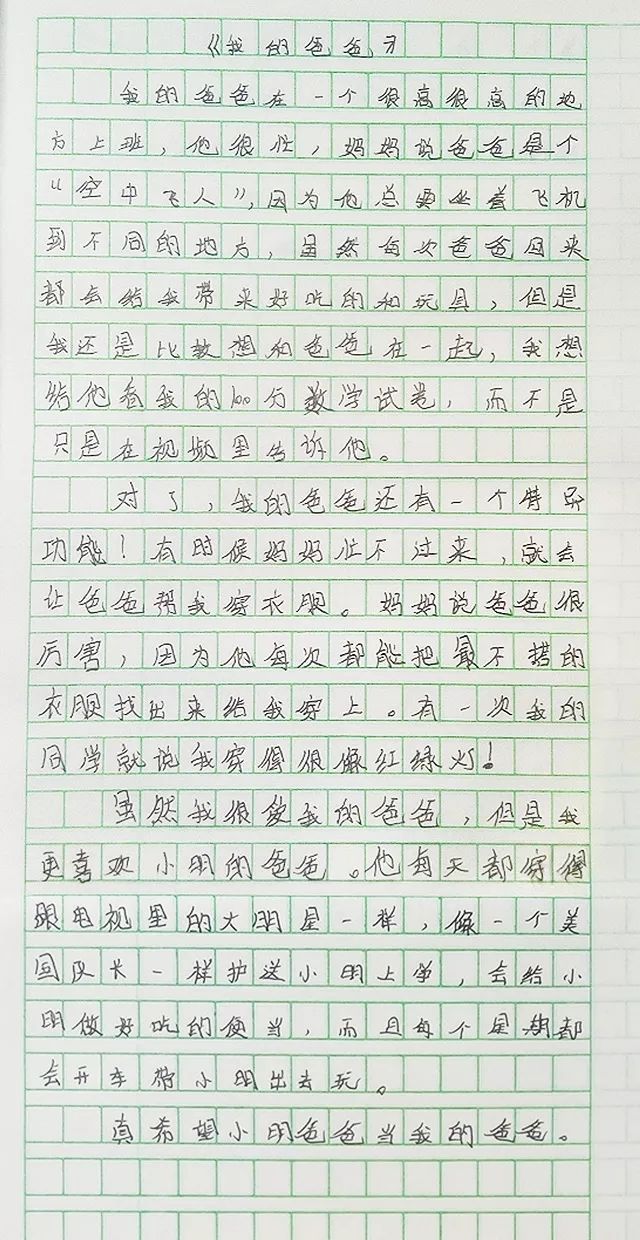 《我的爸爸》
我的爸爸在一个很高很高的地
方上班，他很忙，妈妈说爸爸是个
“空中飞人”，因为他总要坐着飞机
到不同的地方，虽然每次爸爸回来
都会给我带来好吃的和玩具，但是
我还是比较想和爸爸在一起，我想
给他看我的100分数学试卷，而不是
只是在视频里告诉他。
对了，我的爸爸还有一个特异
功能！有时候妈妈忙不过来，就会
让爸爸帮我穿衣服。妈妈说爸爸很
厉害，因为他每次都能把最不搭的
衣服找出来给我穿上。有一次我的
同学就说我穿得很像红绿灯！
虽然我很爱我的爸爸，但是我
更喜欢小明的爸爸。他每天都穿得
跟电视里的大明星一样，像一个美
国队长一样护送小明上学，会给小
明做好吃的便当，而且每个星期都
会开车带小明出去玩。
真希望小明爸爸当我的爸爸。